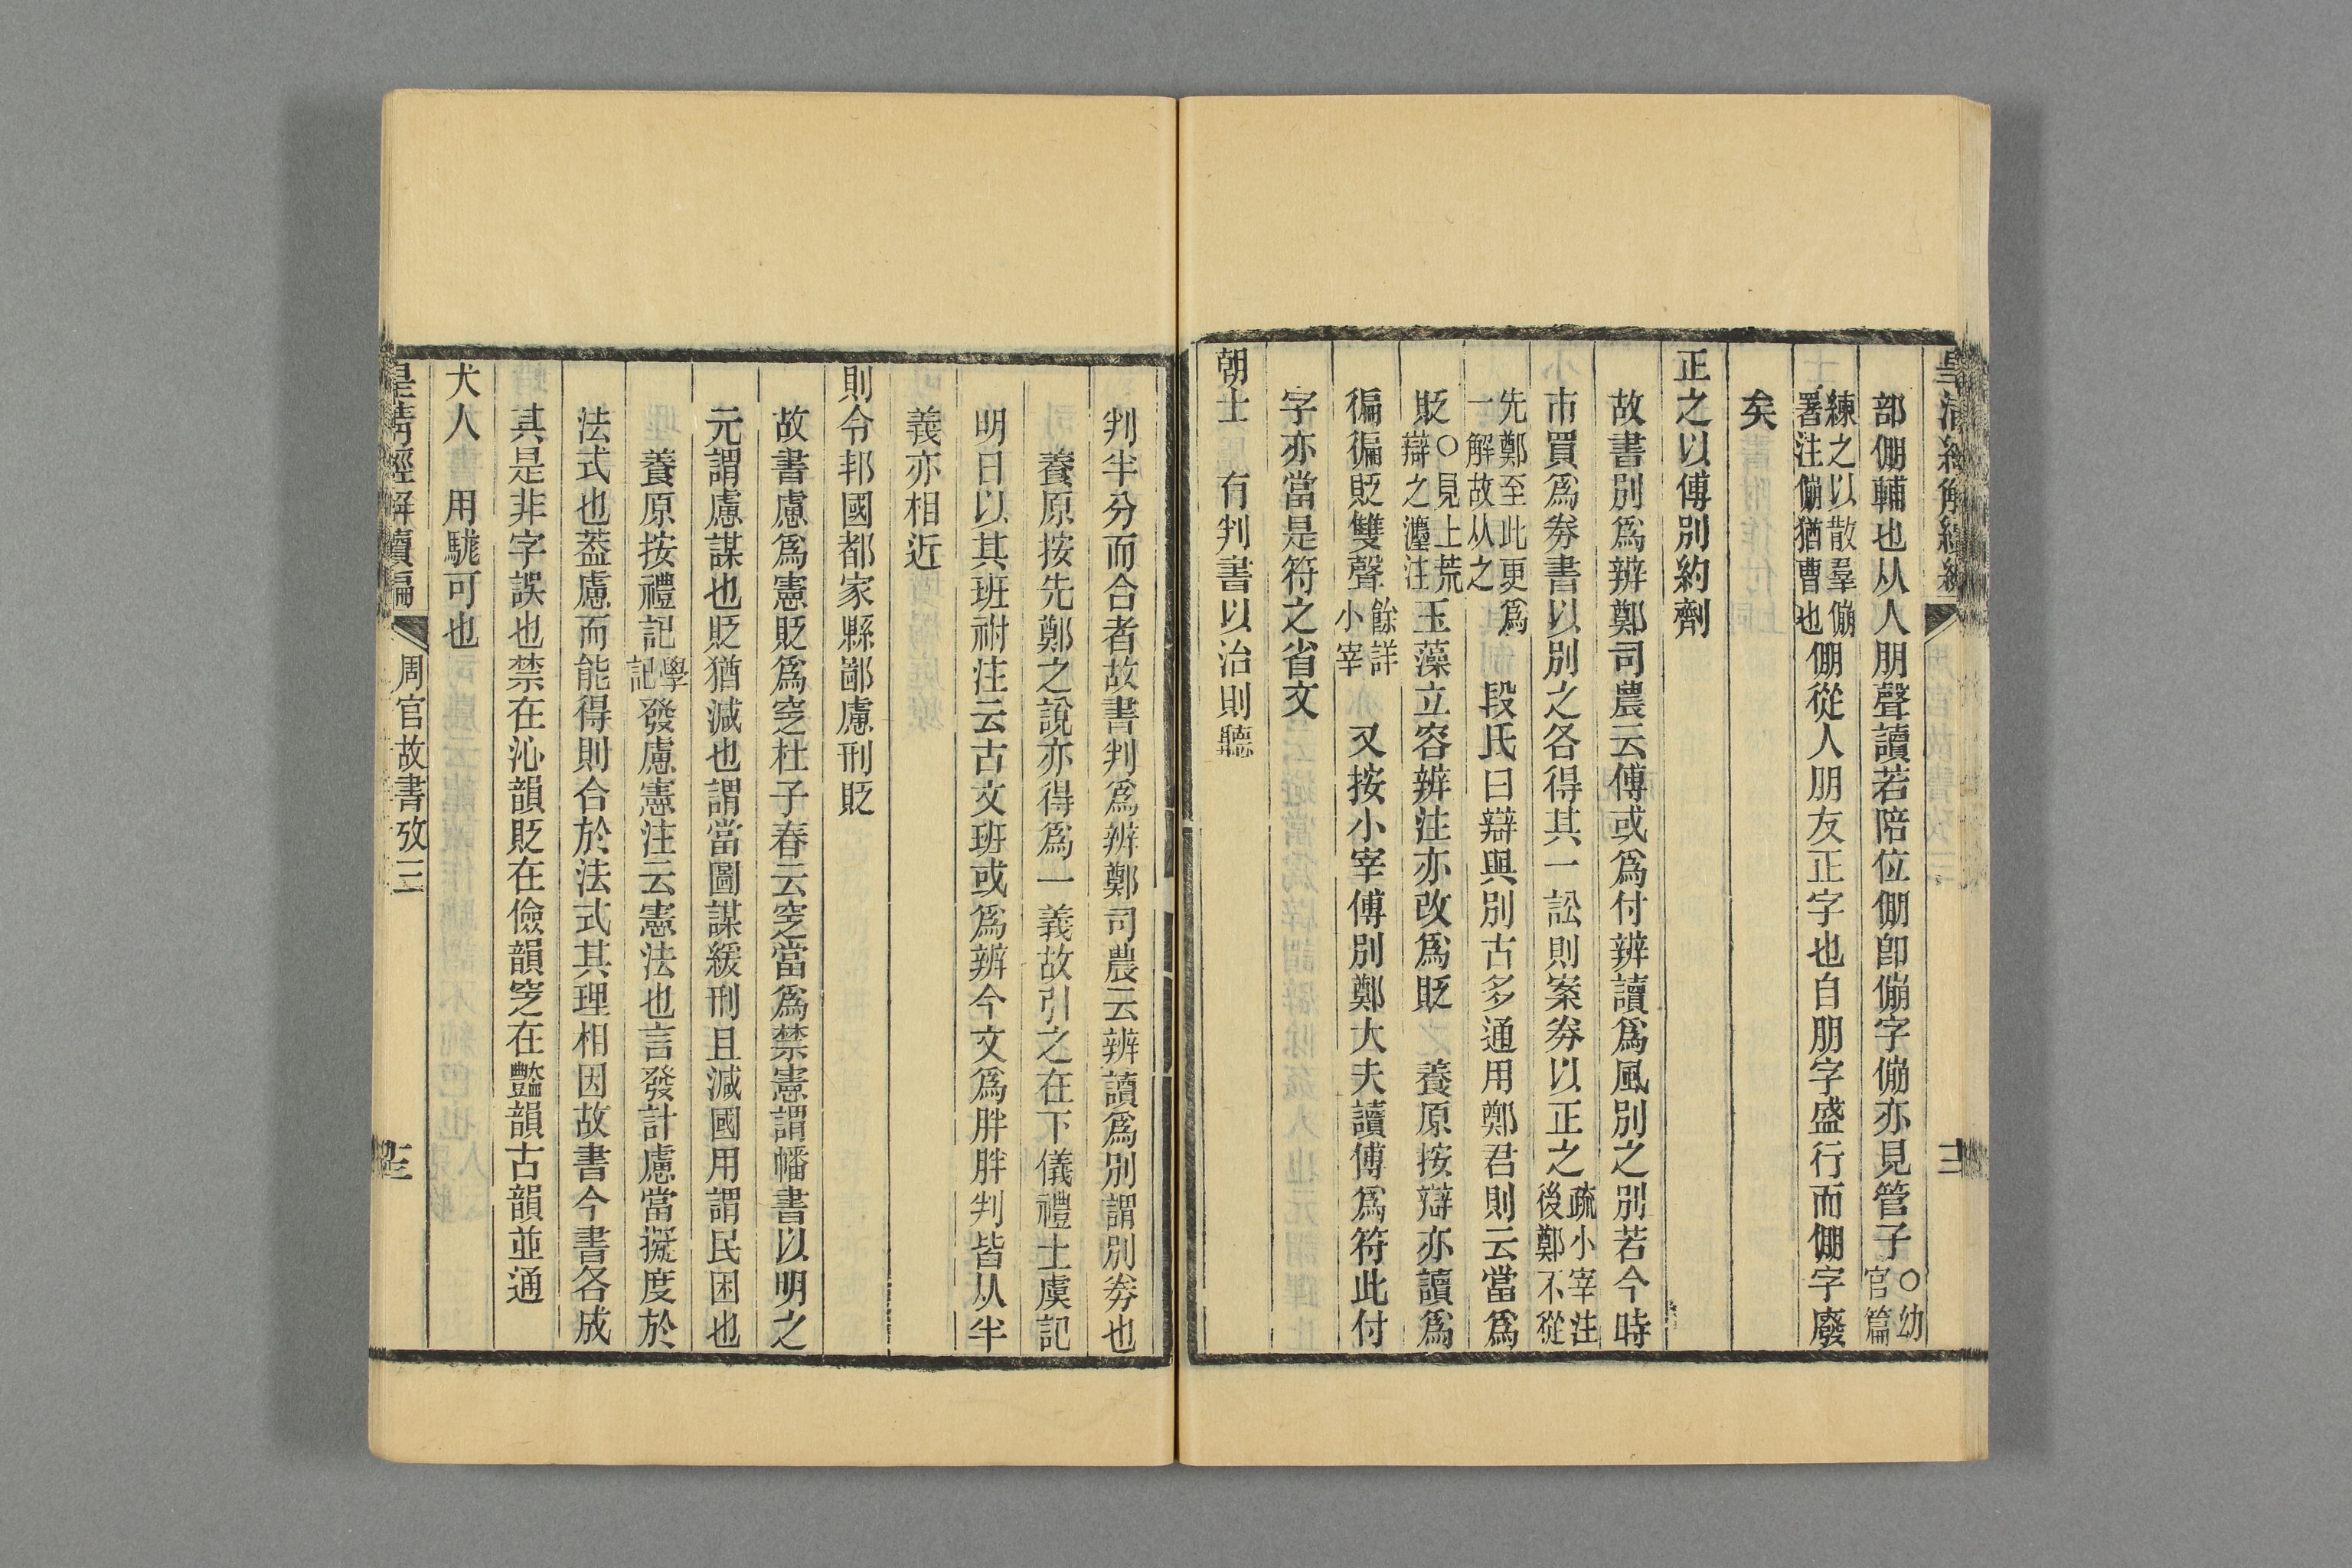 部倗輔也从人朋聲讀若陪位倗卽傰字傰亦見管子○幼官篇
練之以散羣傰署注傰猶曹也倗從人朋友正字也自朋字盛行而倗字廢
矣
正之以傅別約劑
故書別爲辨鄭司農云傅或爲付辨讀爲風別之別若今時
市買爲劵書以別之各得其一訟則案劵以正之疏小宰注後鄭不從
先鄭至此更爲一解故从之　段氏曰辯與別古多通用鄭君則云當爲
貶○見上荒辯之灋注玉藻立容辨注亦改爲貶　養原按辯亦讀爲
徧徧貶雙聲餘詳小宰　又按小宰傅別鄭大夫讀傅爲符此付
字亦當是符之省文
朝士　有判書以治則聽
判半分而合者故書判爲辨鄭司農云辨讀爲別謂別劵也
養原按先鄭之說亦得爲一義故引之在下儀禮士虞記
明日以其班祔注云古文班或爲辨今文爲胖胖判皆从半
義亦相近
則令邦國都家縣鄙慮刑貶
故書慮爲憲貶爲窆杜子春云窆當爲禁憲謂幡書以明之
元謂慮謀也貶猶減也謂當圖謀緩刑且減國用謂民困也
養原按禮記學記發慮憲注云憲法也言發計慮當擬度於
法式也葢慮而能得則合於法式其理相因故書今書各成
其是非字誤也禁在沁韻貶在儉韻窆在豔韻古韻並通
犬人　用駹可也
皇淸經解續編　周官故書攷三